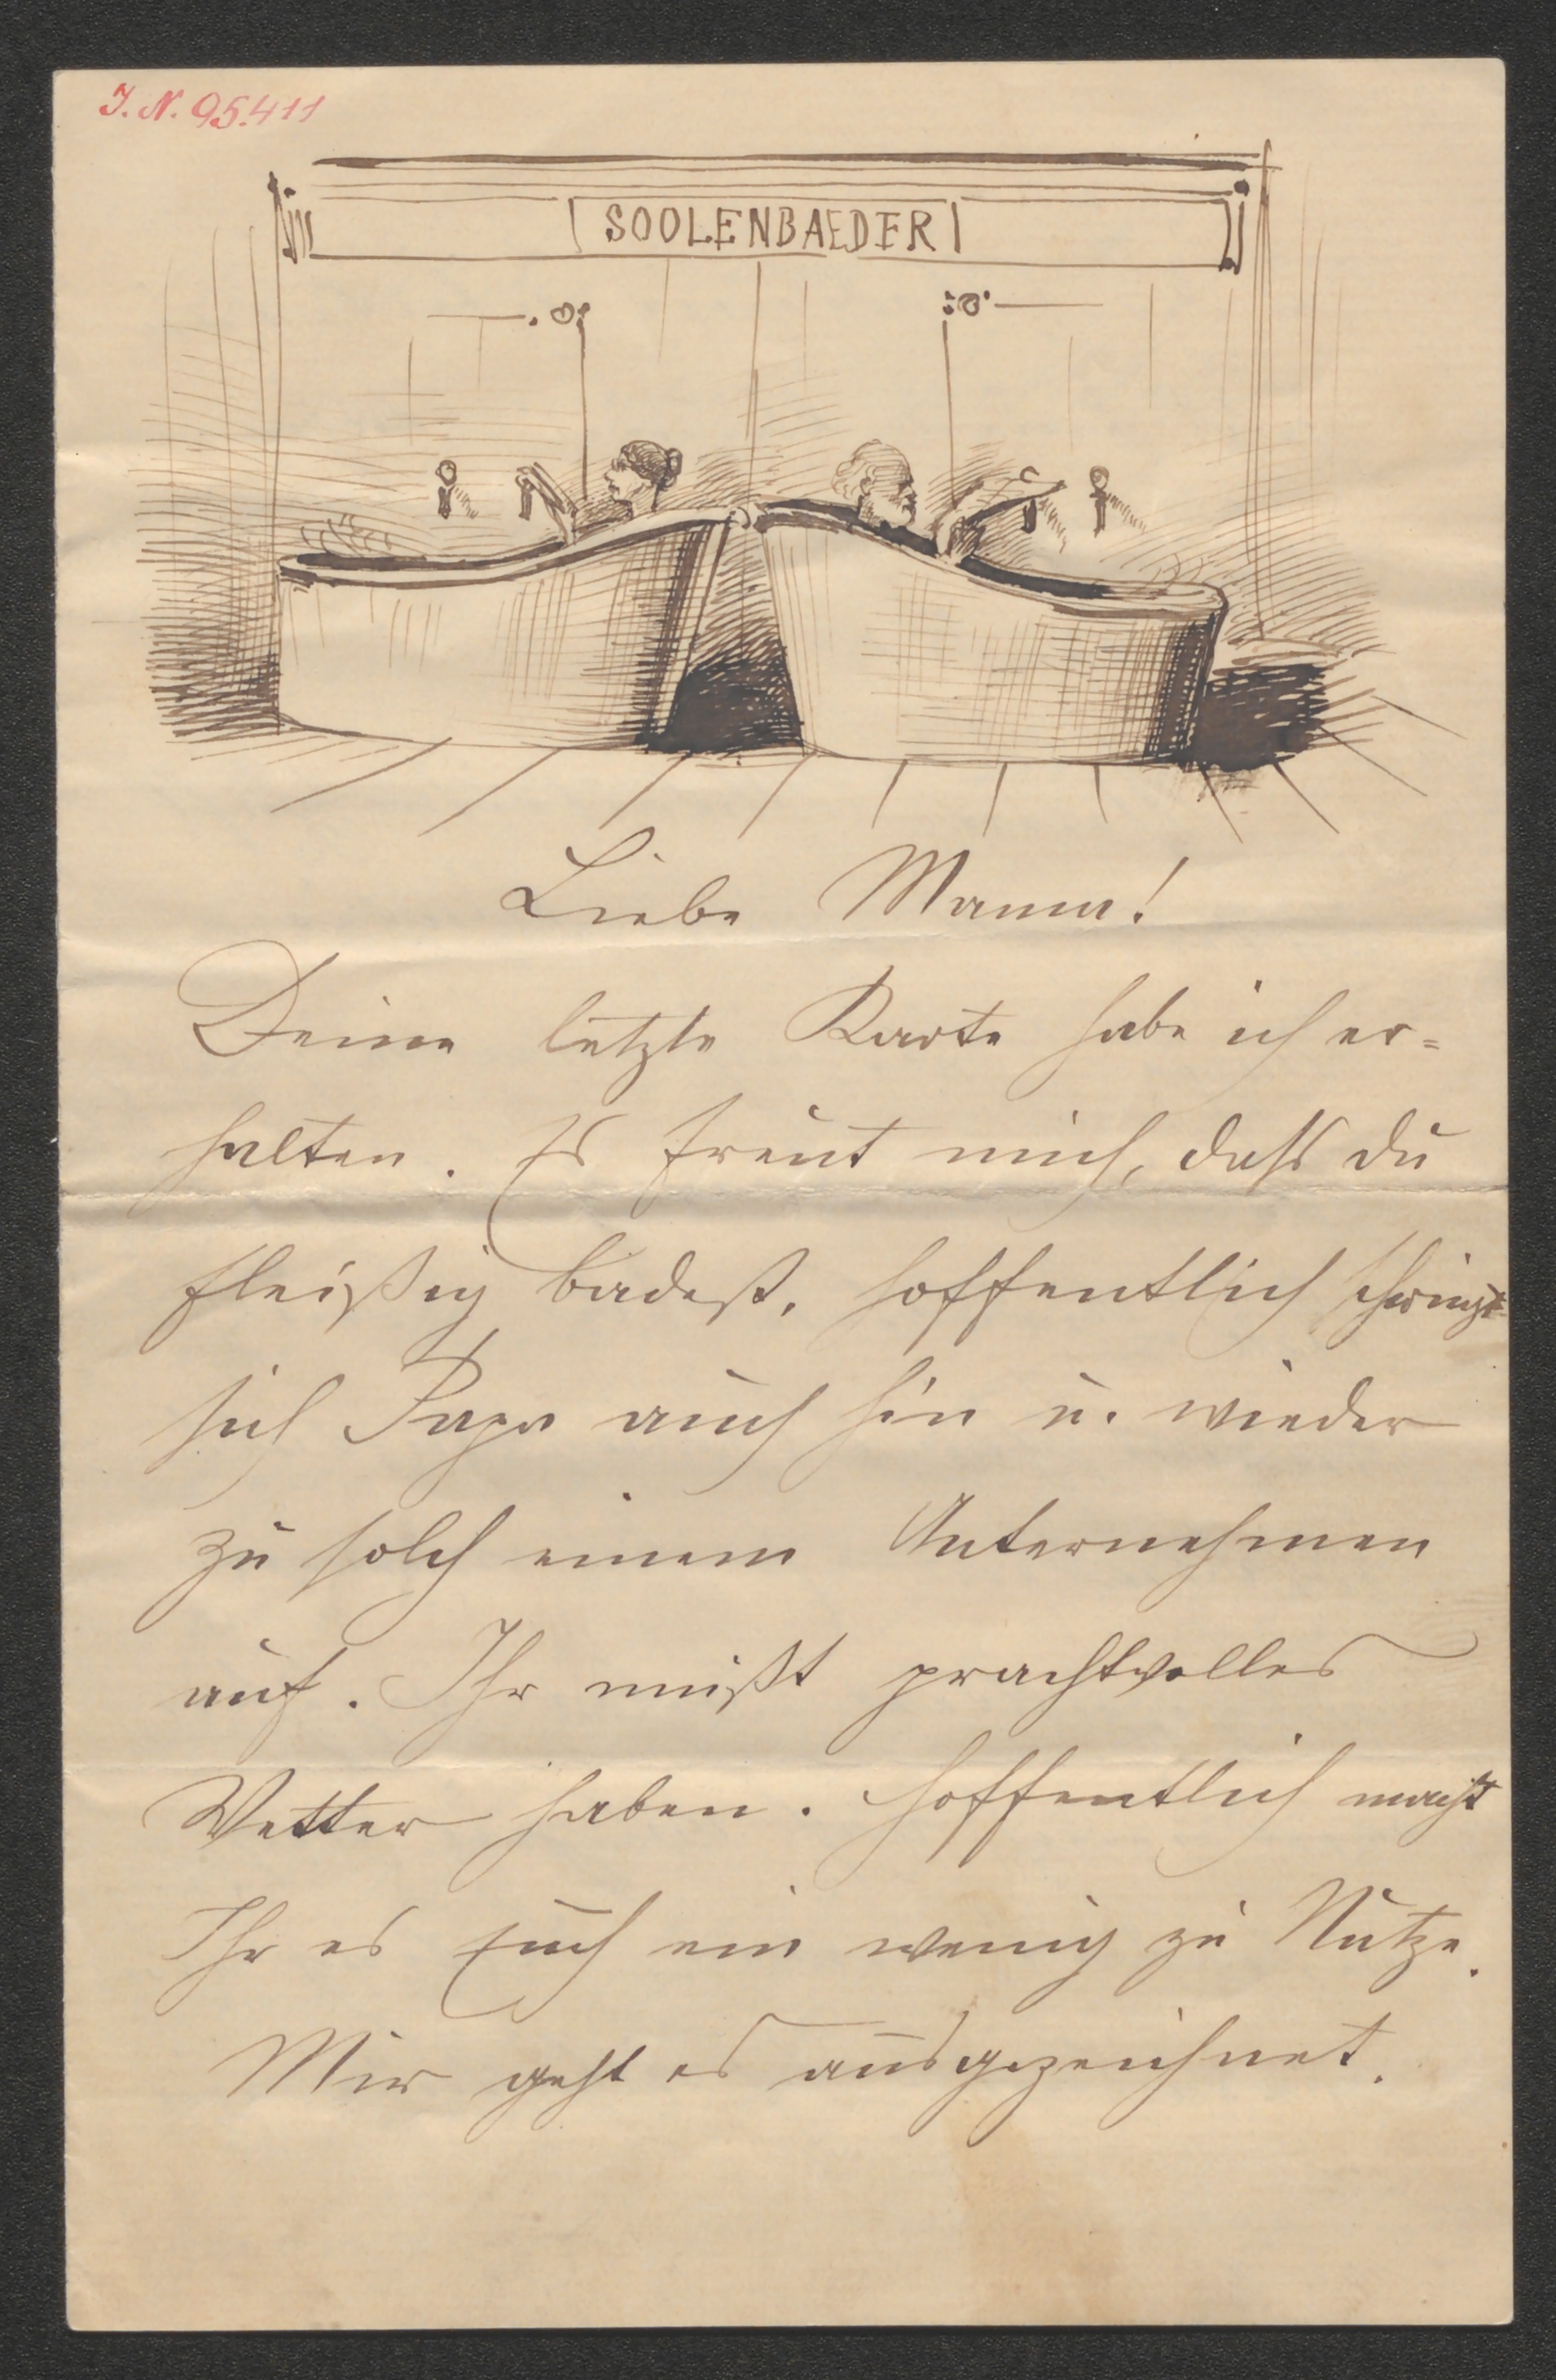 J. N. 95.411
SOOLENBAEDER
Liebe Mama!
Deine letzte Karte habe ich er=
halten. Es freut mich, dass du
fleißig badest, hoffentlich schwingt
sich Papa auch hin u. wieder
zu solch einem Unternehmen
auf. Ihr müßt prachtvolles
Wetter haben. Hoffentlich macht
Ihr es Euch ein wenig zu Nutze.
Mir geht es ausgezeichnet.